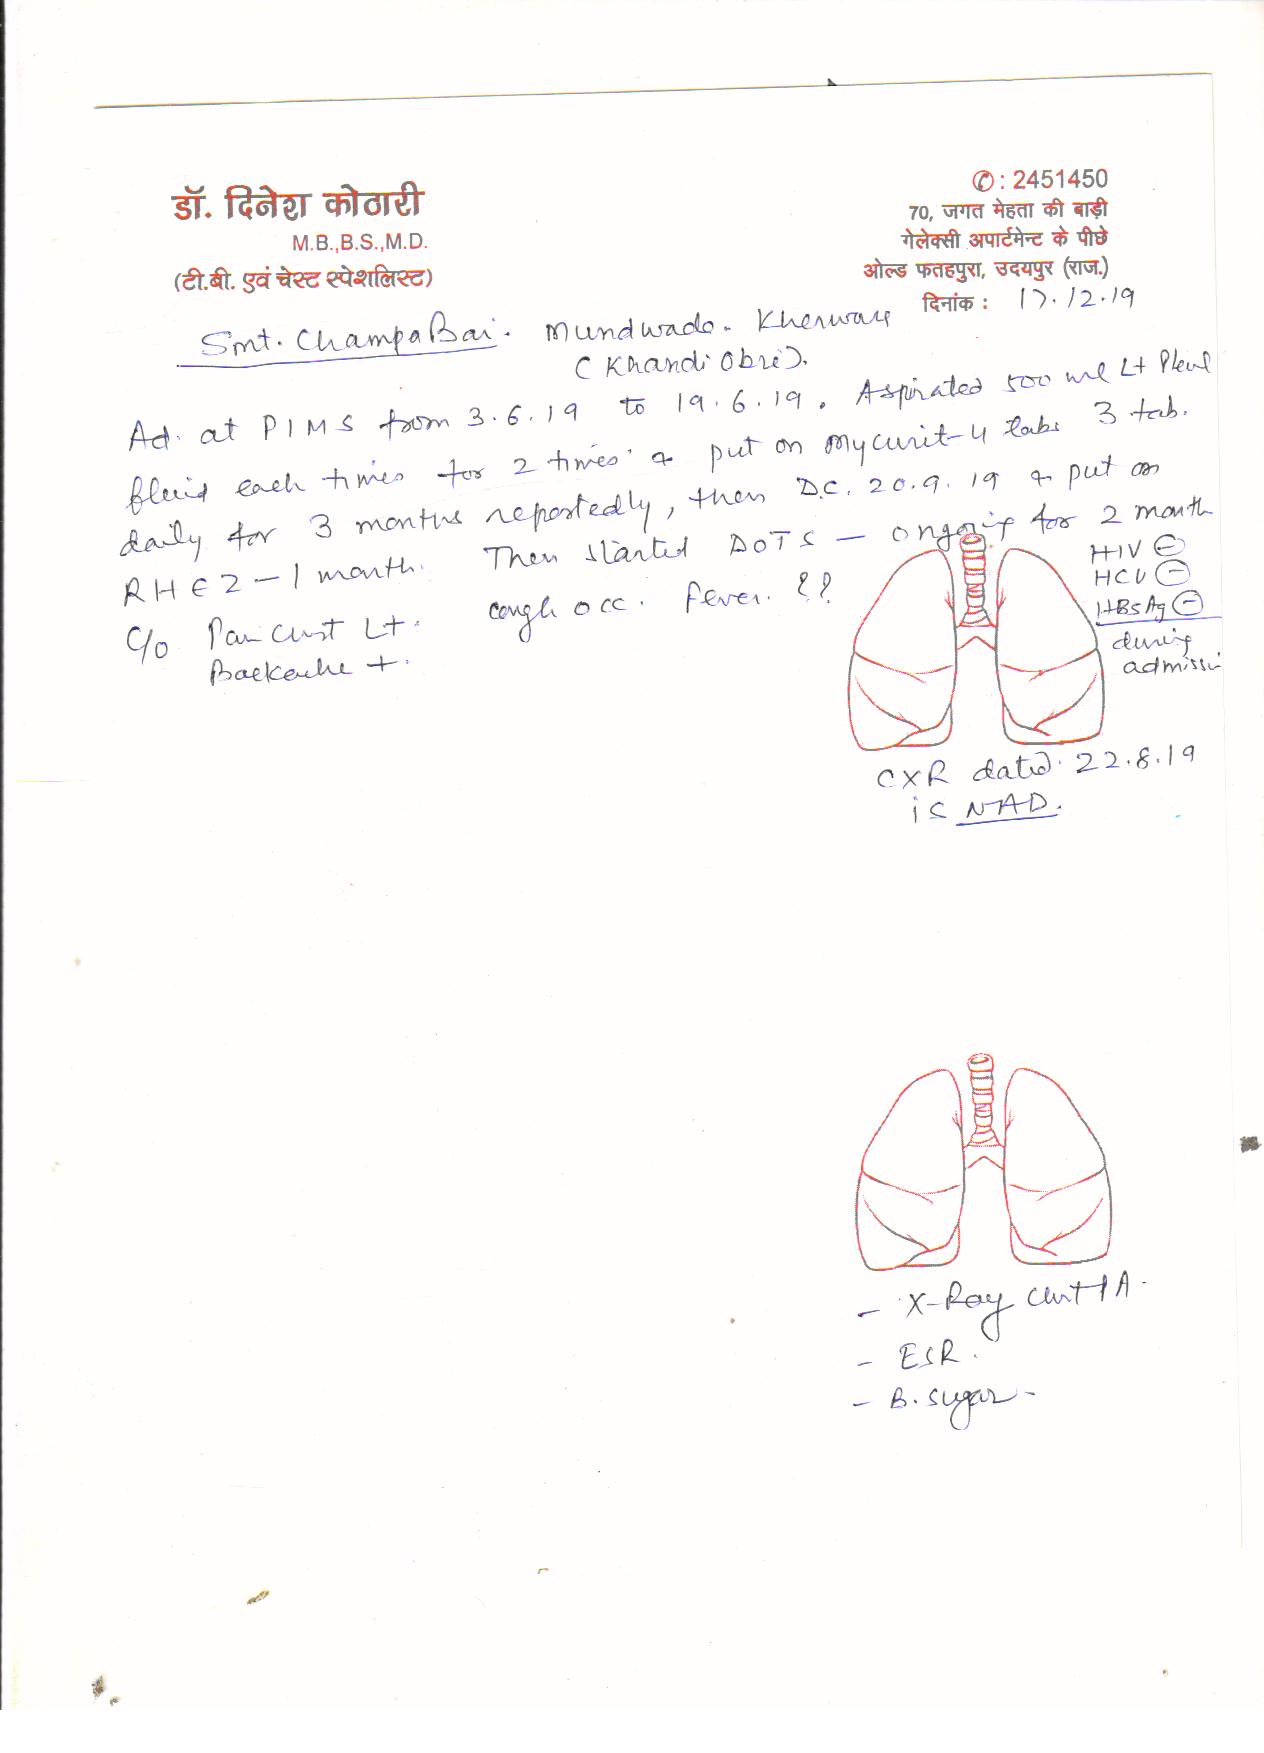 डॉ. दिनेश कोठारी
M.B.,B.S.,M.D.
(टी.बी. एवं चेस्ट स्पेशलिस्ट)
✆ : 2451450
70, जगत मेहता की बाड़ी
गेलेक्सी अपार्टमेन्ट के पीछे
ओल्ड फतहपुरा, उदयपुर (राज.)
दिनांक : 17.12.19
Smt. Champa Bai. Mundwado. Kherwara
(Khandi Obri).
Ad. at PIMS from 3.6.19 to 19.6.19. Aspirated 500 ml Lt Pleul
fluid each times for 2 times & put on Mycurit-4 tabs 3 tab.
daily for 3 months reportedly, then D.C. 20.9.19 & put on
RHEZ - 1 month. Then started DOTS - ongoing for 2 month
C/o Pain Chest Lt. cough occ. Fever. ??
Backache +.
HIV ⊖
HCV ⊖
HBsAg ⊖
during
admissi
CXR dated. 22.8.19
is NAD.
- X-Ray Chest PA.
- ESR.
- B. sugar -